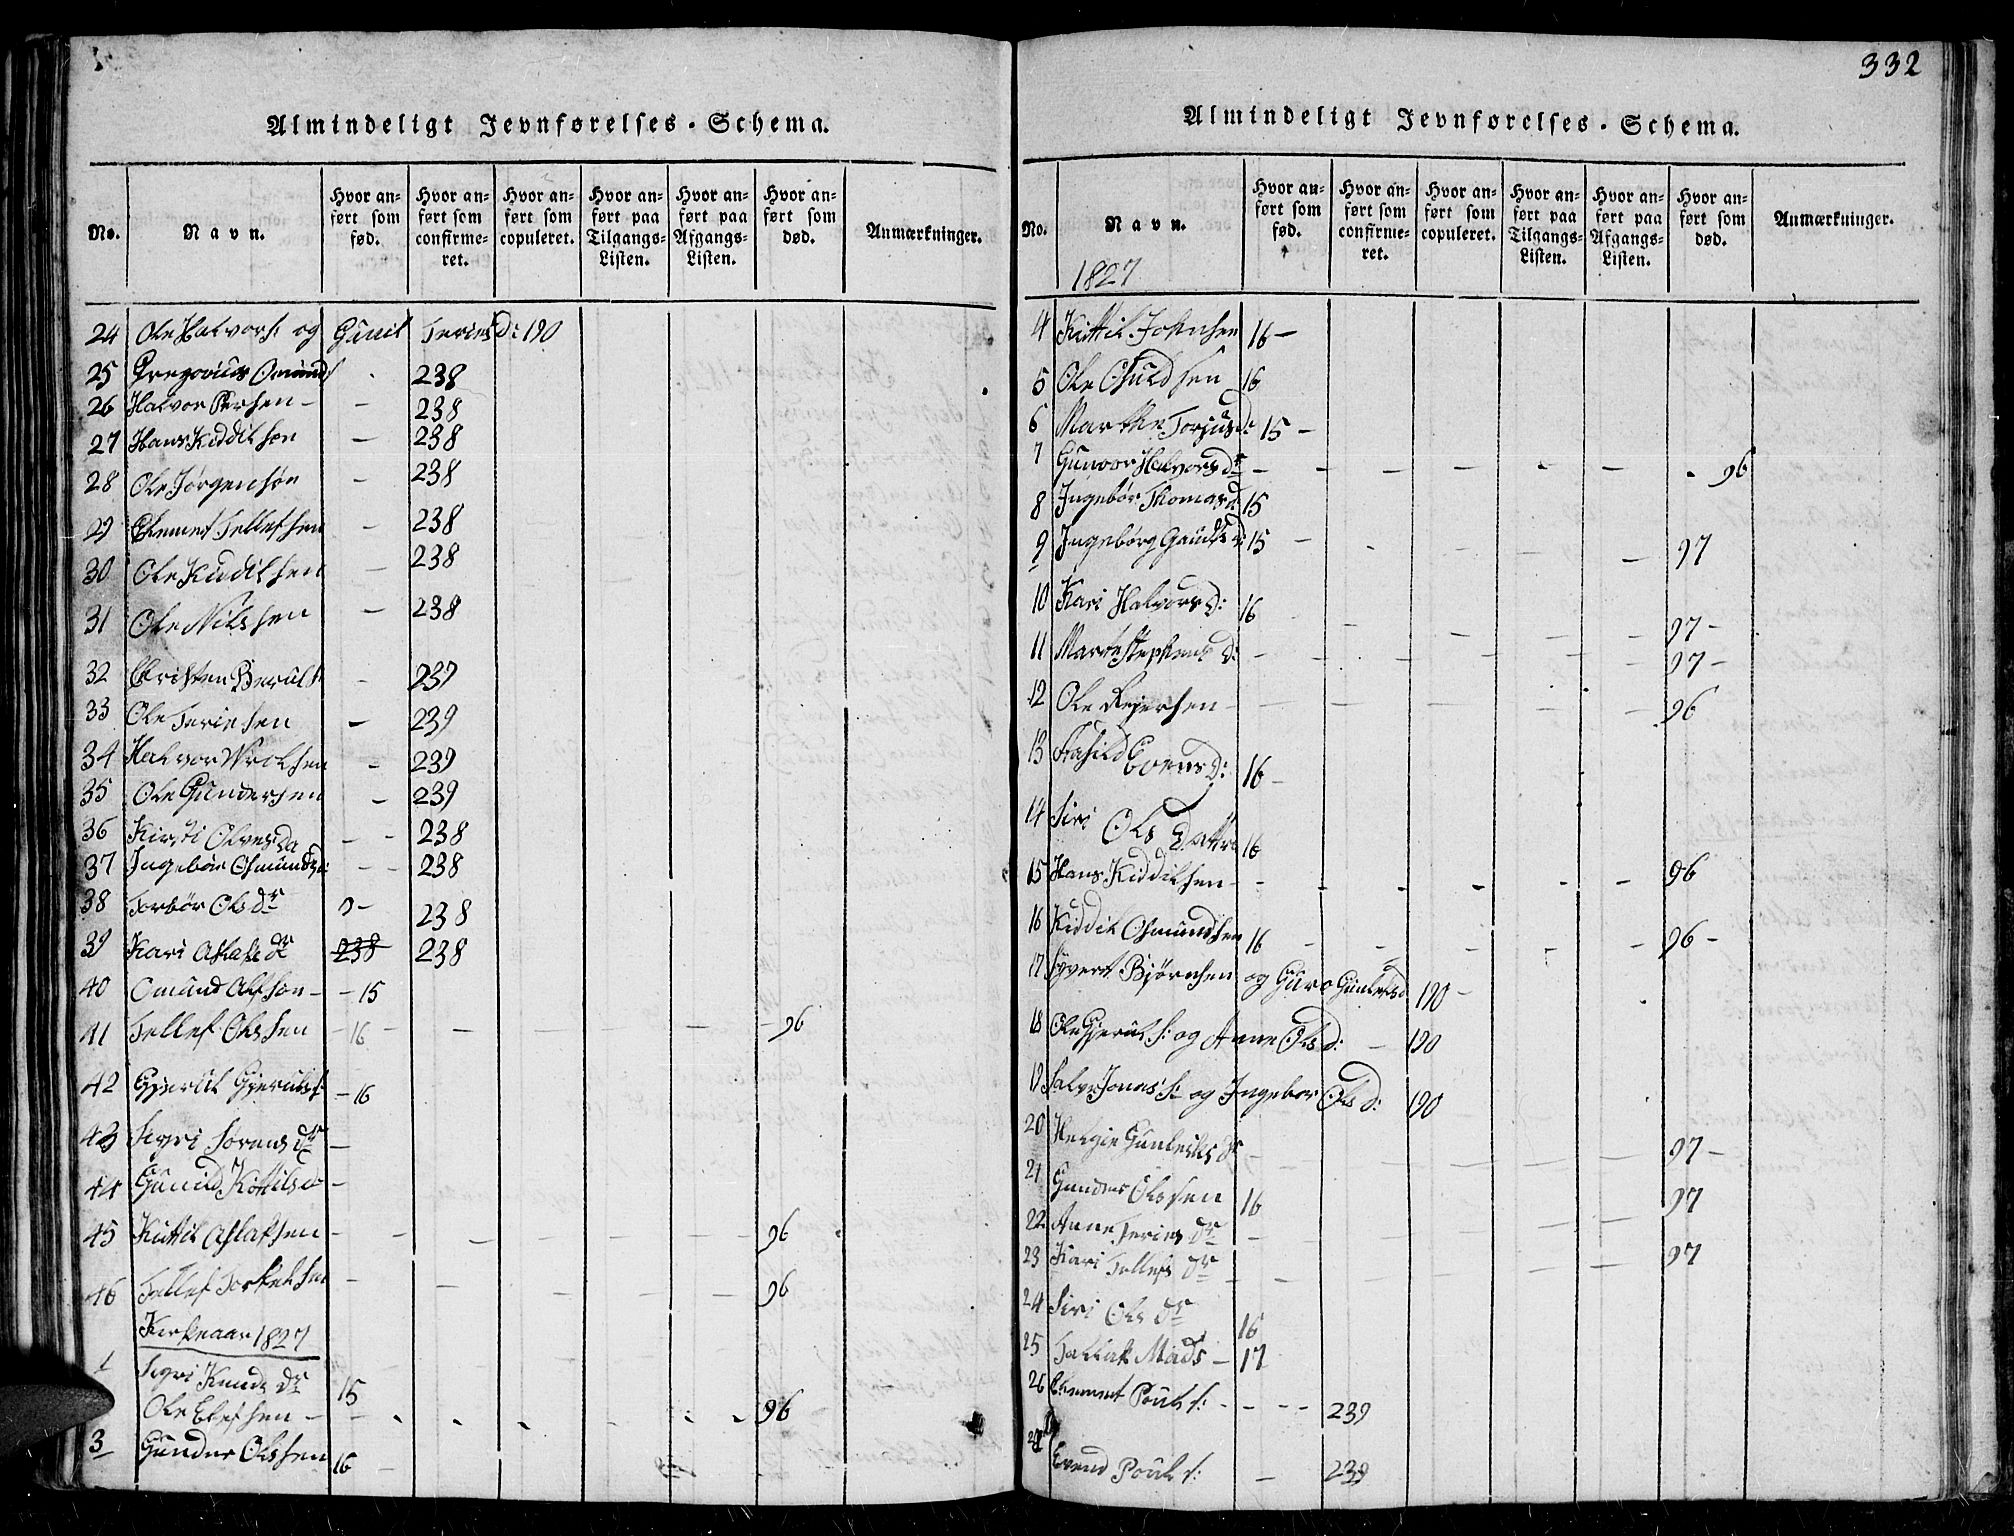 332
Almindeligt Jevnførelses-Schema.
No. Navn. Hvor anført som fød. Hvor anført som confirmeret. Hvor anført som copuleret. Hvor anført paa Tilgangs-Listen. Hvor anført paa Afgangs-Listen. Hvor anført som død. Anmærkninger.
24 Ole Halvors: og Gunil Teries D: 190
25 Gregorius Omunds - 238
26 Halvor Persen - - 238
27 Hans Kiddilson - 238
28 Ole Jørgensøn - 238
29 Clemet Tellefsen - 238
30 Ole Kiddilsen - 238
31 Ole Nilssen - 238
32 Christen Beruls - 239
33 Ole Teriesen - 239
34 Halvor Wrolsen - 239
35 Ole Gundersen - 239
36 Kirsti Olves Da - - 238
37 Ingebor Osmunds D: - - 238
38 Torbør Ols dr 9 - 238
39 Kari Aslaks dr 238 238
40 Omund Alfson - - 15
41 Tellef Olssen - 16 - - - - - 96
42 Gjerul Gjeruls s - 16
43 Sigri Sørens dr -
44 Gunild Kittils d -
45 Kittil Aslaksen - - - - - - 96
46 Tellef Torkelsen - - - - - 96
Kirkeaar 1827
1 Sigri Knuds dr 15
Ole Elefsen - - - - - - - 96
3 Gunder Olssen 16 -
Almindeligt Jevnførelses-Schema.
No. Navn. Hvor anført som fød. Hvor anført som confirmeret. Hvor anført som copuleret. Hvor anført paa Tilgangs-Listen. Hvor anført paa Afgangs-Listen. Hvor anført som død. Anmærkninger.
1827
4 Kittil Johnsen 16 -
5 Ole Osuldsen 16
6 Marthe Torjus d: 15 -
7 Gunvor Halvors dr - - - - - - 96
8 Ingebør Thomas d: 15
9 Ingebørg Gunds d: 15 - - - - - 97
10 Kari Halvors D: 16 - - - - - 97 -
11 Marte Stephens D: - - - - - - 97 -
12 Ole Reiersen - - - - - - 96
13 Aasild Evens D: 16 -
14 Siri Ols Datter 16
15 Hans Kiddilsen - - - - - - 96
16 Kiddil Osmundsen 16 - - - - - 96 -
17 Syvert Bjørnsen og Guro Gunleks d 190 -
18 Ole Gjeruls s: og Anne Ols d: - 190
19 Salve Jonas s: og Ingebor Ols d: 190
20 Helgie Gunleiks dr - - - - - 97 -
21 Gunder Olssen 16 97
22 Anne Teries dr - - - - - -
23 Kari Tellefs dr - - - - - 97
24 Siri Ols dr 16
25 Tallak Mads - 17
26 Clemmet Pouls s: - - - - 239
27 Evend Pouls s: - 239